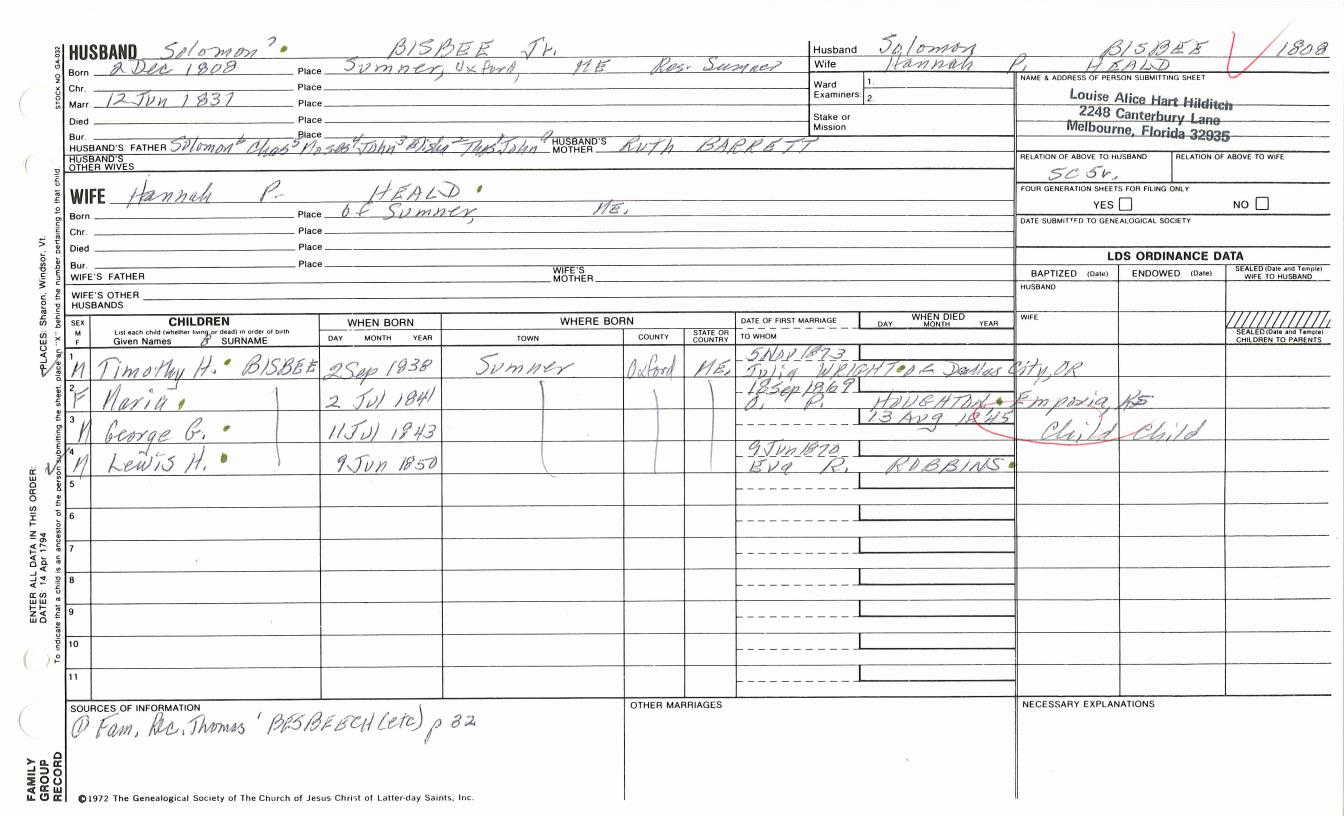 HUSBAND Solomon 7 BISBEE Jr.
Born 2 Dec 1808 Place Sumner, Oxford, ME Res. Sumner
Chr. Place
Marr 12 Jun 1837 Place
Died Place
Bur. Place
HUSBAND'S FATHER Solomon 6 Chas 5 Moses 4 John 3 Elisha 2 Thos 1 John 0 HUSBAND'S MOTHER Ruth BARRETT
HUSBAND'S OTHER WIVES
Husband Solomon BISBEE 1808
Wife Hannah P. HEALD
Ward Examiners 1. 2.
Stake or Mission
NAME & ADDRESS OF PERSON SUBMITTING SHEET
Louise Alice Hart Hilditch
2248 Canterbury Lane
Melbourne, Florida 32935
RELATION OF ABOVE TO HUSBAND RELATION OF ABOVE TO WIFE
5C 5r.
FOUR GENERATION SHEETS FOR FILING ONLY
YES NO
DATE SUBMITTED TO GENEALOGICAL SOCIETY
WIFE Hannah P. HEALD
Born Place of Sumner, ME.
Chr. Place
Died Place
Bur. Place
WIFE'S FATHER WIFE'S MOTHER
WIFE'S OTHER HUSBANDS
LDS ORDINANCE DATA
BAPTIZED (Date) ENDOWED (Date) SEALED (Date and Temple) WIFE TO HUSBAND
HUSBAND
WIFE
SEALED (Date and Temple) CHILDREN TO PARENTS
SEX M F CHILDREN WHEN BORN WHERE BORN DATE OF FIRST MARRIAGE WHEN DIED
List each child (whether living or dead) in order of birth
Given Names SURNAME DAY MONTH YEAR TOWN COUNTY STATE OR COUNTRY TO WHOM DAY MONTH YEAR
5 Nov 1873
1 M Timothy H. BISBEE 2 Sep 1838 Sumner Oxford ME. Julia WRIGHT of Dallas City, OR
18 Sep 1869
2 F Maria 2 Jul 1841 O. P. HOUGHTON Emporia, KS
13 Aug 1845
3 M George G. 11 Jul 1843 Child Child
9 Jun 1870
4 M Lewis H. 9 Jun 1850 Eva R. ROBBINS
5
6
7
8
9
10
11
SOURCES OF INFORMATION OTHER MARRIAGES NECESSARY EXPLANATIONS
① Fam. Rec. Thomas 1 BESBEECH (etc) p 32
©1972 The Genealogical Society of The Church of Jesus Christ of Latter-day Saints, Inc.
STOCK NO. GA-032
To indicate that a child is an ancestor of the person submitting the sheet, place an "X" behind the number pertaining to that child
ENTER ALL DATA IN THIS ORDER:
DATES 14 Apr 1794
PLACES: Sharon, Windsor, Vt.
FAMILY GROUP RECORD